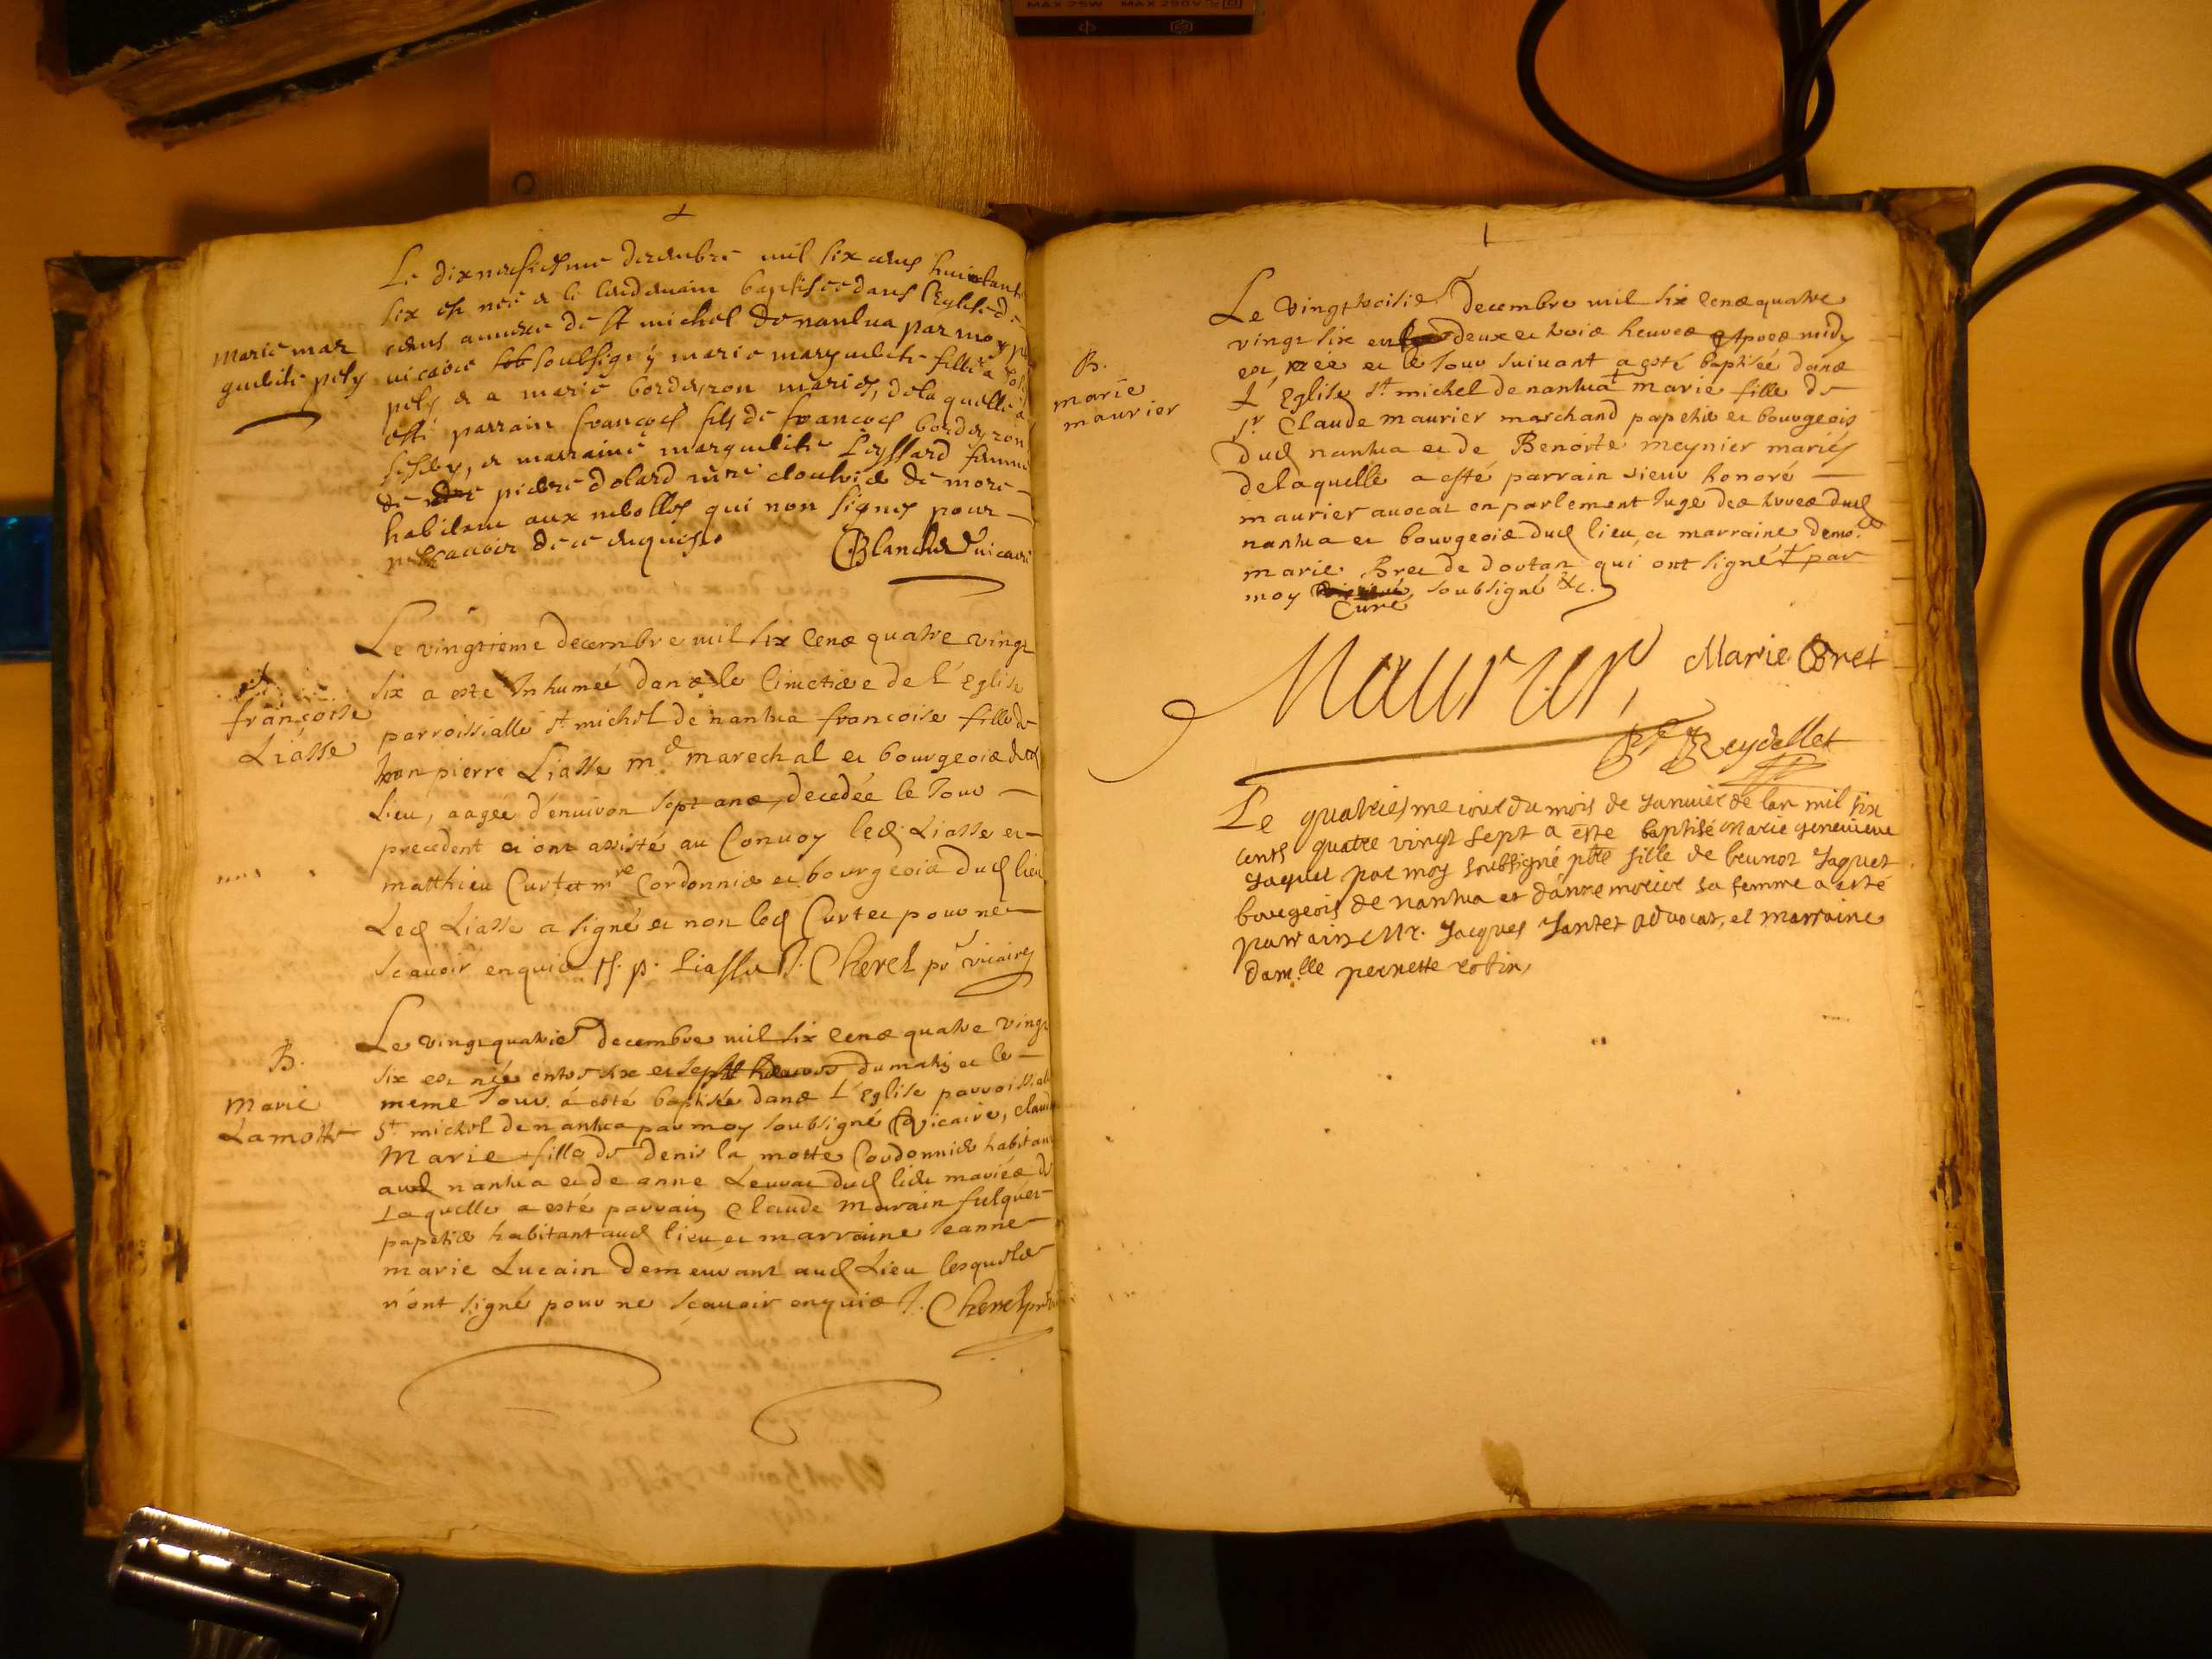 MAX 75W MAX 250V
Le dixneufiesme decembre mil six cens huictante
six est née et le lendemain baptisée dans l'Eglise de
ceans annexe de st michel de nantua par moy
vicaire soubsigné marie marguelite fille a
pely et a marie borderon mariés, de laquelle a
esté parrain françois fils de françois borderon
et marraine marguelite femme
de pierre dolard
habitant aux qui non signes pour
ne scavoir de ce enquis.
Blanchet vicaire
Marie mar
guelite pely
Le vingtieme decembre mil six cens quatre vingt
six a esté Inhumée dans le Cimetiere de L'Eglise
parroissialle st michel de nantua françoise fille de
Jean pierre Liasse md marechal et bourgeois dud
Lieu, aagée d'environ sept ans, decedée le Jour
precedent et ont assisté au Convoy led. Liasse et
matthieu Curtet mre Cordonnier et bourgeois dud lieu
Led Liasse a signé et non led Curtet pour ne
scavoir enquis J. p. Liasse J. Cherel pr vicaire
françoise
Liasse
Le vingtquatrie decembre mil six cens quatre vingt
six est née entre six et sept heures du matin et le
meme Jour a esté baptisée dans L'Eglise parroissiale
St michel de nantua par moy soubsigné Vicaire, claude
Marie fille de denis la motte Cordonnier habitant
aud nantua et de anne Leuvat dud lieu mariés de
Laquelle a esté parrain Claude
papetier habitant aud lieu et marraine Jeanne
marie Lucain demeurant aud Lieu lesquels
n'ont signé pour ne scavoir enquis J. Cherel pr
B.
Marie
Lamotte
Le vingt troisie decembre mil six cens quatre
vingt six entre deux et trois heures apres midy
est née et le Jour suivant a esté baptisée dans
L'Eglise st michel de nantua marie fille de
sr Claude maurier marchand papetier et bourgeois
dud nantua et de Benoite meynier mariés
de laquelle a esté parrain sieur honoré
maurier avocat en parlement Juge des dud
nantua et bourgeois dud lieu, et marraine demo.lle
marie Bret de dortan qui ont signé par
moy soubsigné &c.
Curé
B.
marie
maurier
Maurier, Marie Bret
Reydellet
Le quatriesme iour du mois de Januier de lan mil six
cents quatre vingt sept a este baptisé Marie genevieve
Jaquet par moy soubsigné ptre fille de Jaquet
bourgeois de nantua et sa femme a esté
parrain Mr. Jacques Jantet advocat, et marraine
dam.lle pernette